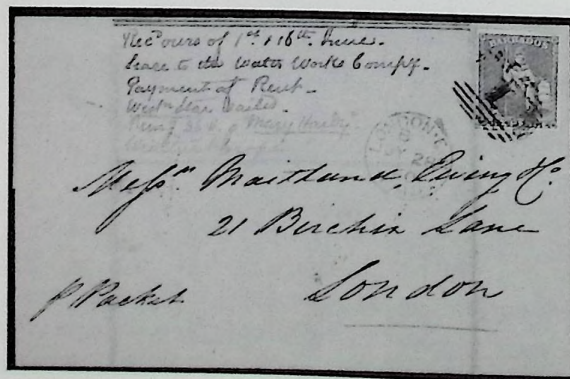 Rec^d ours of 1st & 16th June.
Lease to the Water Works Compy.
Payment of Rent.
West Star sailed.
BARBADOS
LONDON
Mess^rs Maitland, Ewing & Co.
21 Birchin Lane
London
p Packet